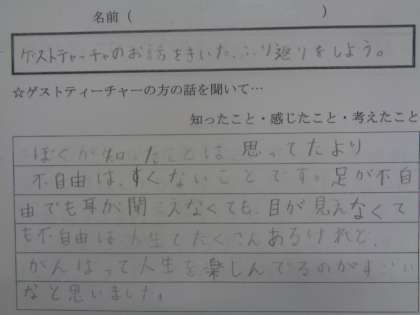 名前（　　　　　　　　　　）
ゲストティーチャーのお話をきいて、ふり返りをしよう。
☆ゲストティーチャーの方の話を聞いて…
知ったこと・感じたこと・考えたこと
ぼくが知ったことは、思ってたより
不自由は、すくないことです。足が不自
由でも耳が聞こえなくても、目が見えなくて
も不自由は人生でたくさんあるけれど、
がんばって人生を楽しんでるのがすごい
なと思いました。